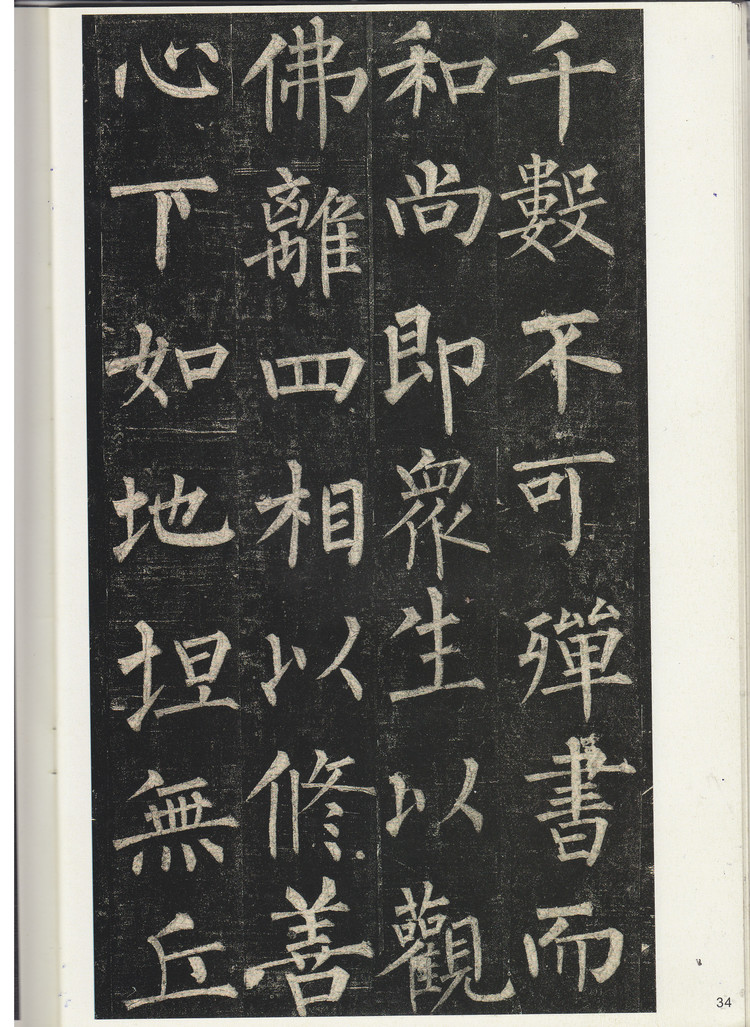 千數不可殫書而
和尚即衆生以觀
佛離四相以修善
心下如地坦無丘
34